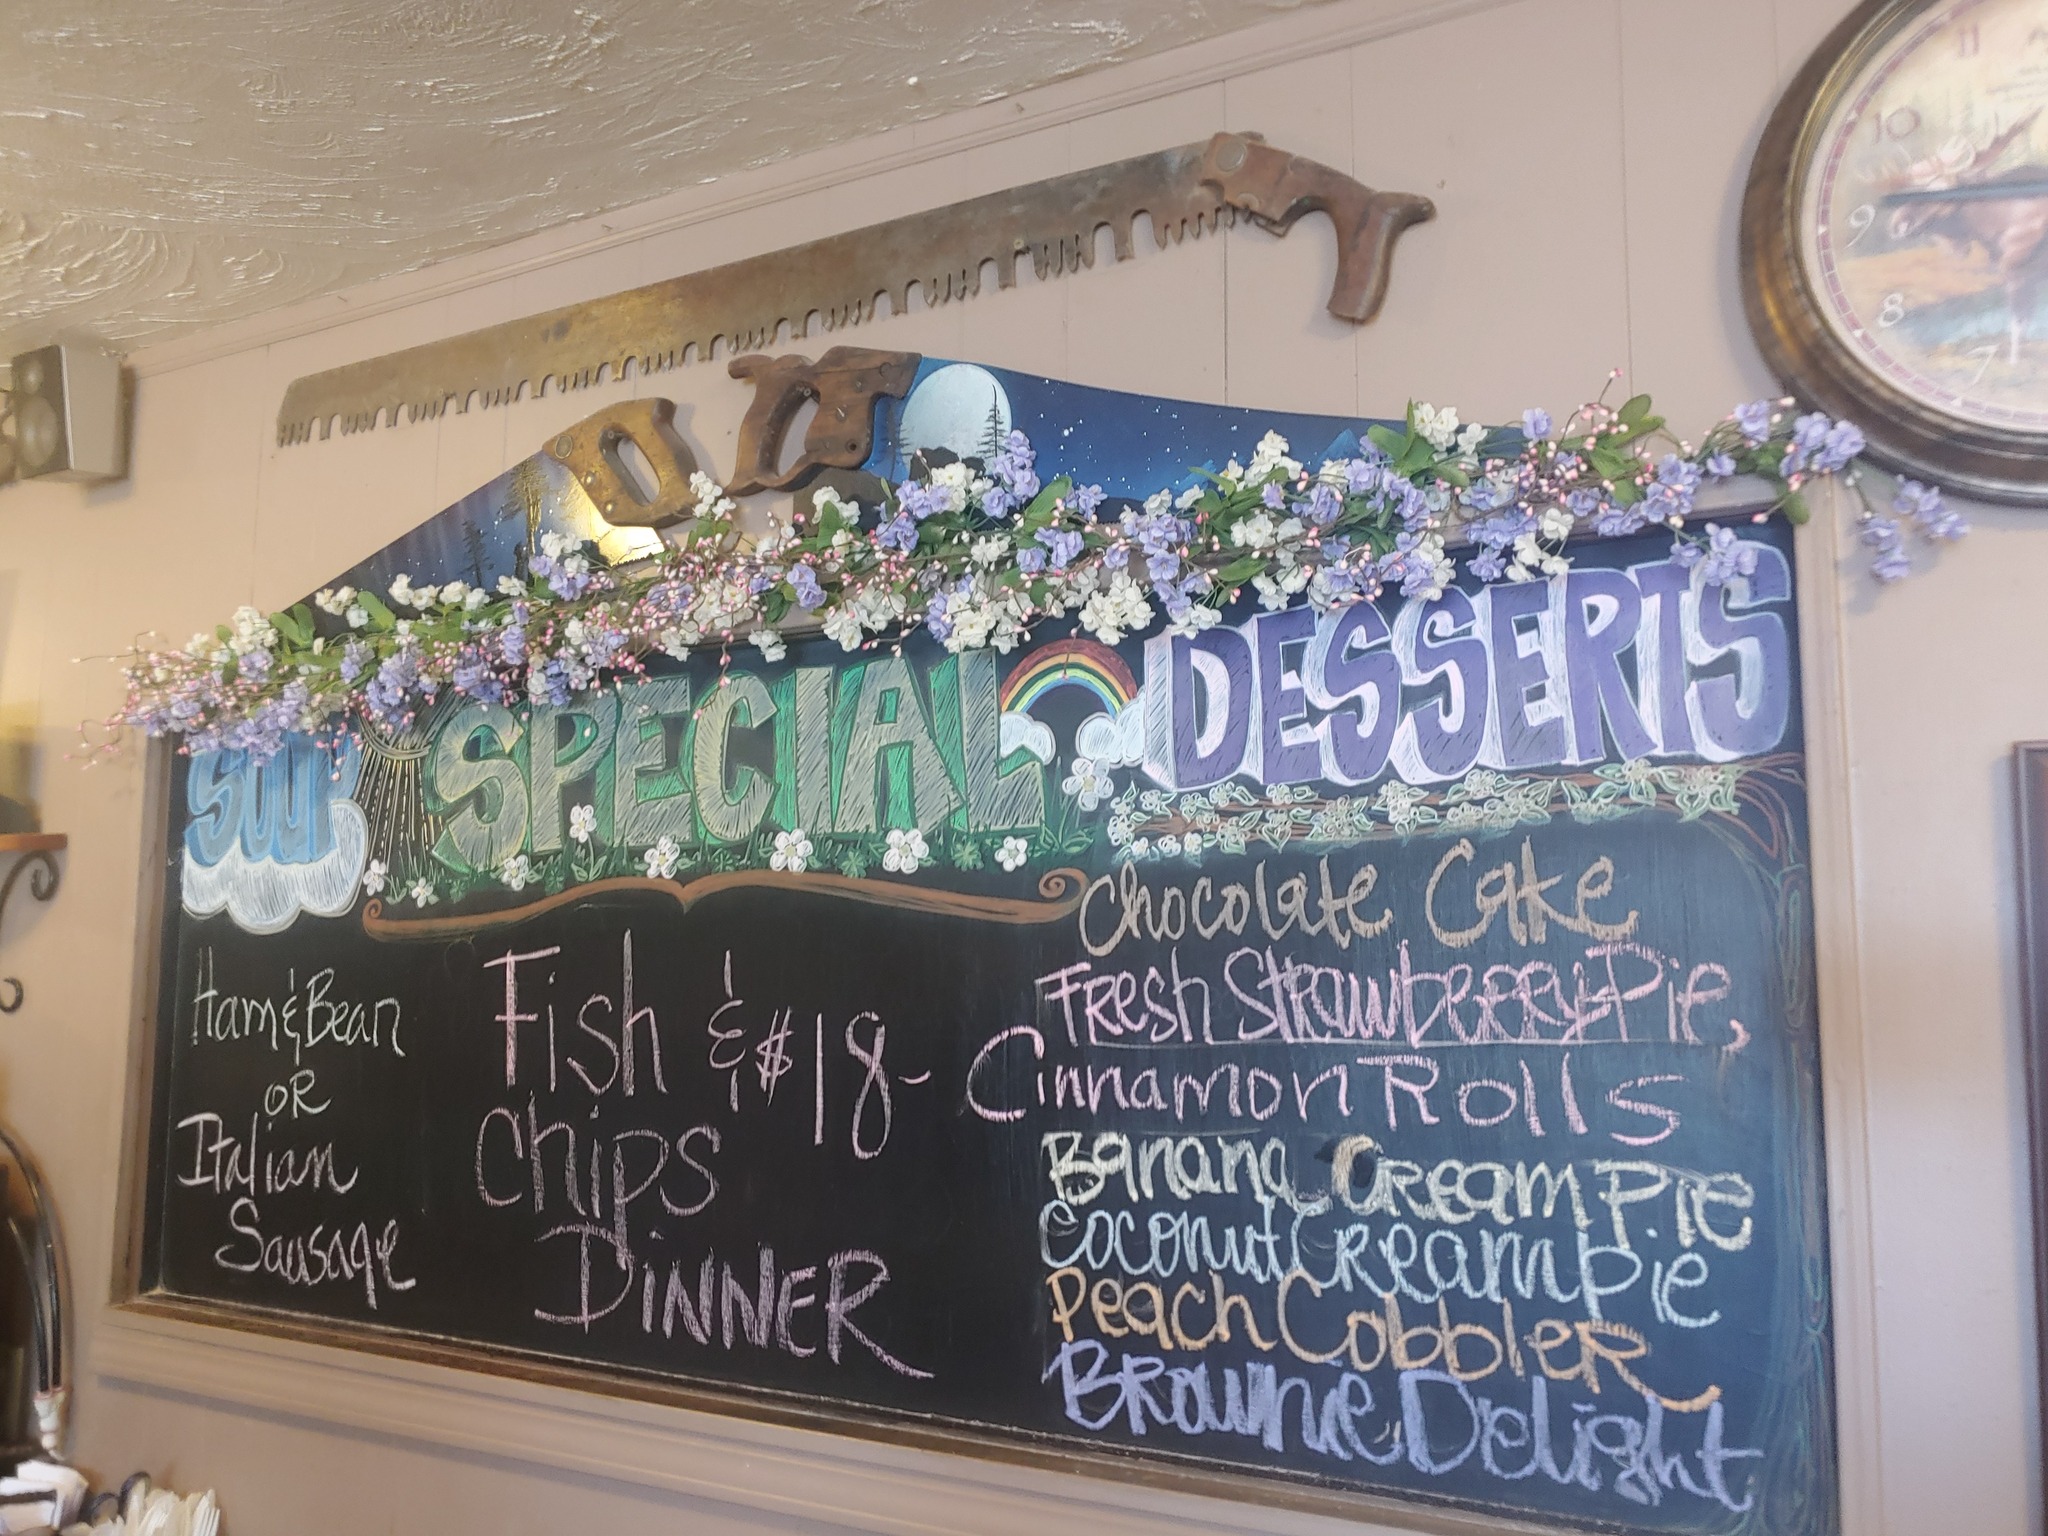 SOUP
Ham & Bean
OR
Italian
Sausage
SPECIAL
Fish & $18-
Chips
DINNER
DESSERTS
Chocolate Cake
Fresh Strawberry Pie
Cinnamon Rolls
Banana Cream Pie
Coconut Cream Pie
Peach Cobbler
Brownie Delight
11
10
9
8
7